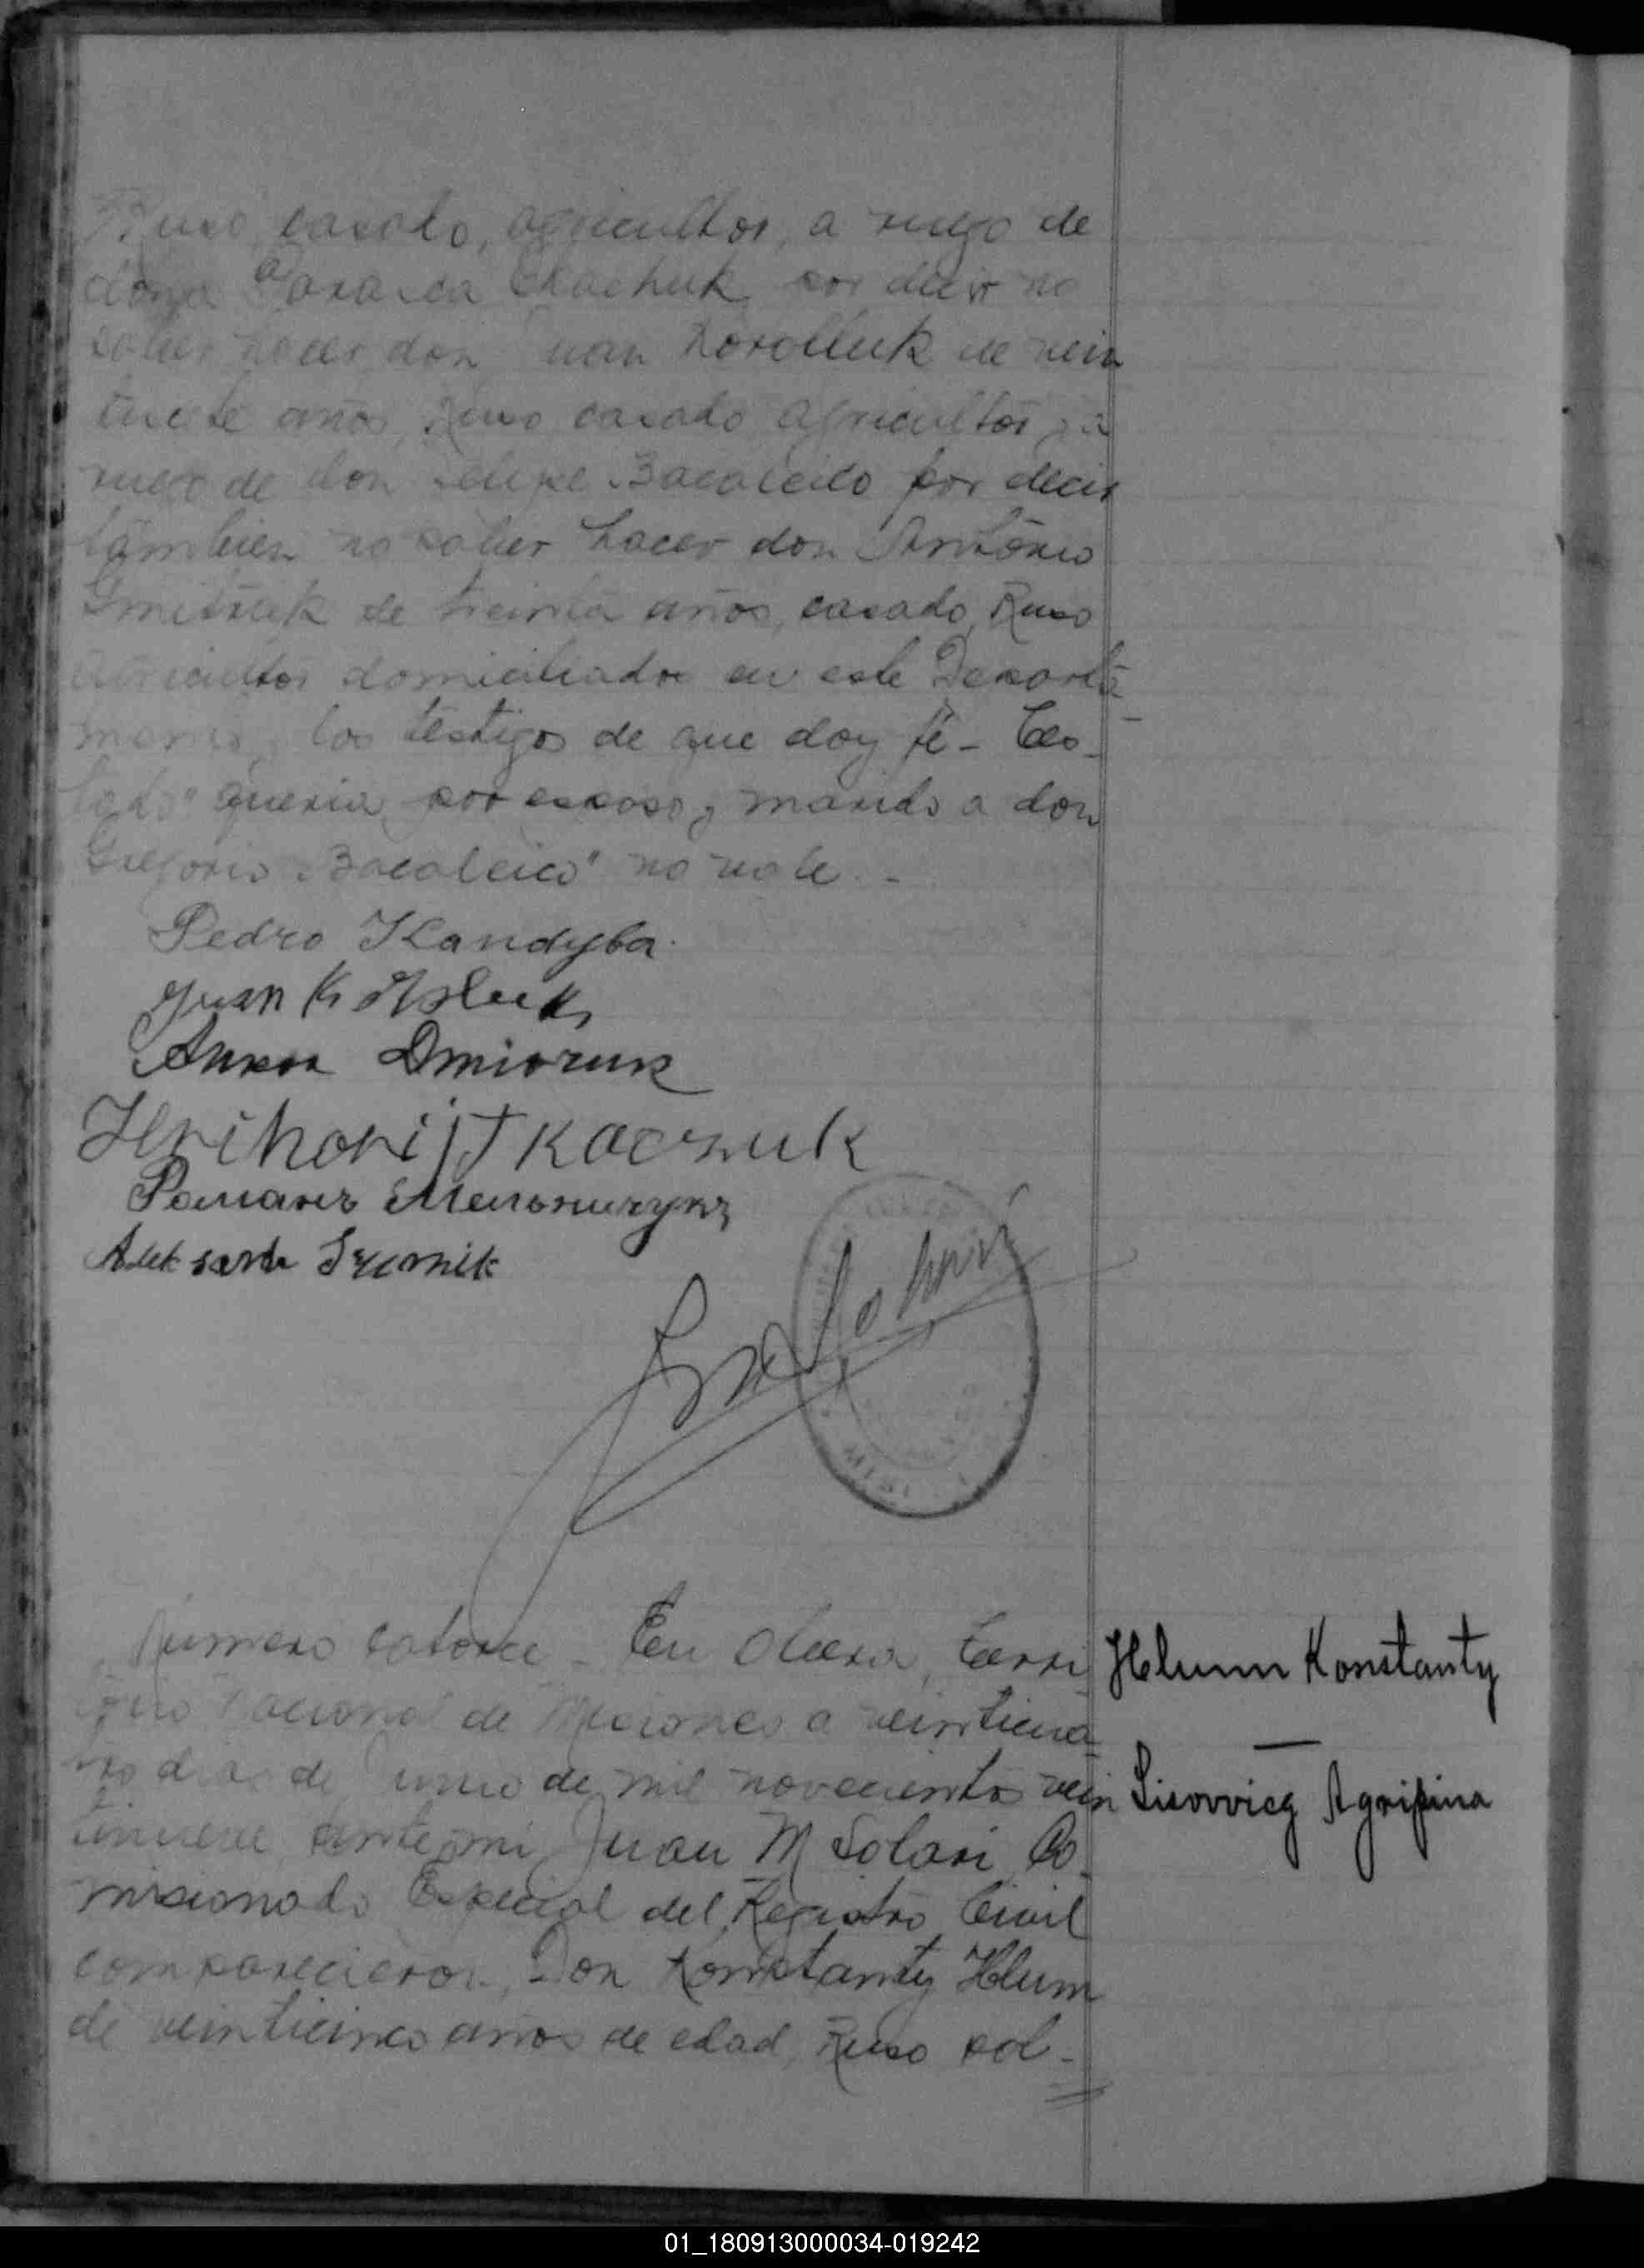 Ruso, casado, agricultor, a ruego de
doña Parasca Chachuk por decir no
saber hacer don Juan Korolluk de vein
tisiete años, Ruso casado agricultor, a
ruego de don Felipe Bacaleico por decir
tambien no saber hacer don Antonio
Gmitruk de treinta años, casado, Ruso
agricultor domiciliados en este Departa
mento, los testigos de que doy fé - Tes-
tado "queria por esposo y marido a don
Gregorio Bacaleico" no vale. -
Pedro Kandyba.
Juan
Антон Дмитрук
Hrihorij Tkaczuk
Романъ Мельничукъ
Numero catorce - En Obera, Terri
torio Nacional de Misiones a veinticua
tro dias de Junio de mil novecientos vein
tinueve ante mi, Juan M Solari Co-
misionado Especial del Registro Civil
comparecieron, Don Konstanty Hlum
de veinticinco años de edad, Ruso sol-
Hlumn Konstanty
—
Lisovvieg Agripina
01_180913000034-019242